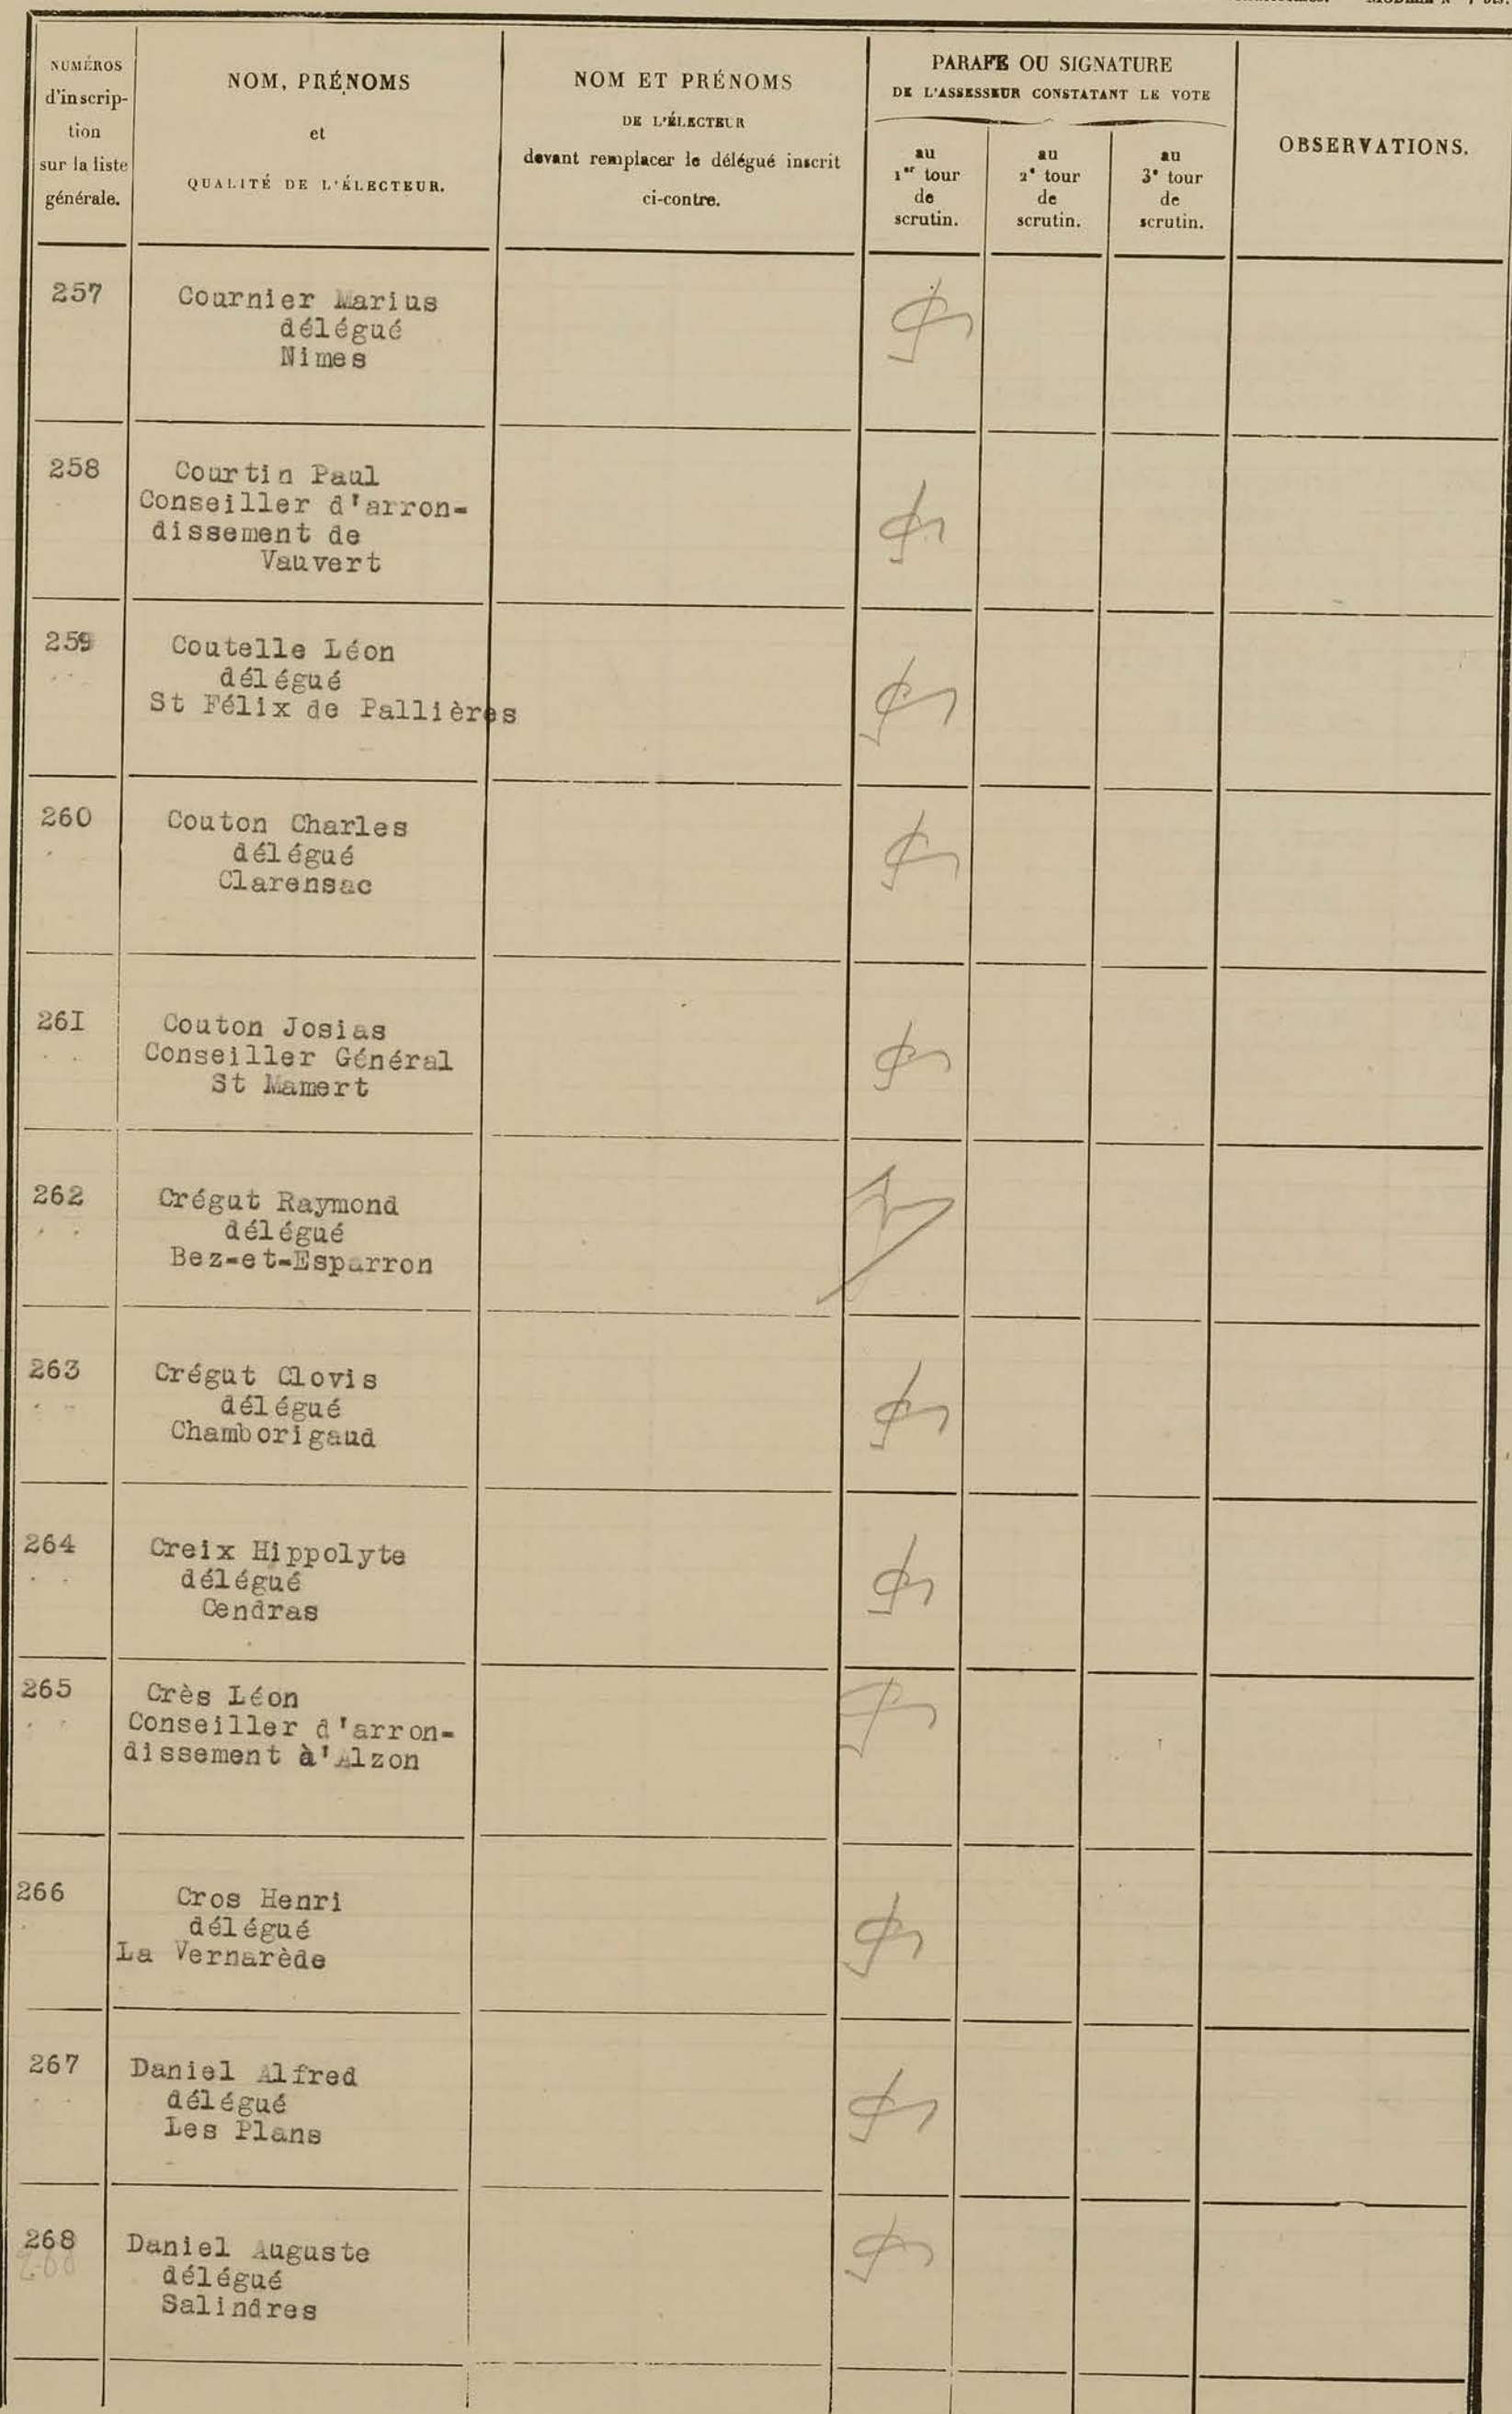 MODÈLE N° 7 bis.
NUMÉROS
d'inscrip-
tion
sur la liste
générale.
NOM, PRÉNOMS
et
QUALITÉ DE L'ÉLECTEUR.
NOM ET PRÉNOMS
DE L'ÉLECTEUR
devant remplacer le délégué inscrit
ci-contre.
PARAFE OU SIGNATURE
DE L'ASSESSEUR CONSTATANT LE VOTE
au
1er tour
de
scrutin.
au
2e tour
de
scrutin.
au
3e tour
de
scrutin.
OBSERVATIONS.
257
Cournier Marius
délégué
Nimes
258
Courtin Paul
Conseiller d'arron-
dissement de
Vauvert
259
Coutelle Léon
délégué
St Félix de Pallières
260
Couton Charles
délégué
Clarensac
26I
Couton Josias
Conseiller Général
St Mamert
262
Crégut Raymond
délégué
Bez-et-Esparron
263
Crégut Clovis
délégué
Chamborigaud
264
Creix Hippolyte
délégué
Cendras
265
Crès Léon
Conseiller d'arron-
dissement à'Alzon
266
Cros Henri
délégué
La Vernarède
267
Daniel Alfred
délégué
Les Plans
268
Daniel Auguste
délégué
Salindres